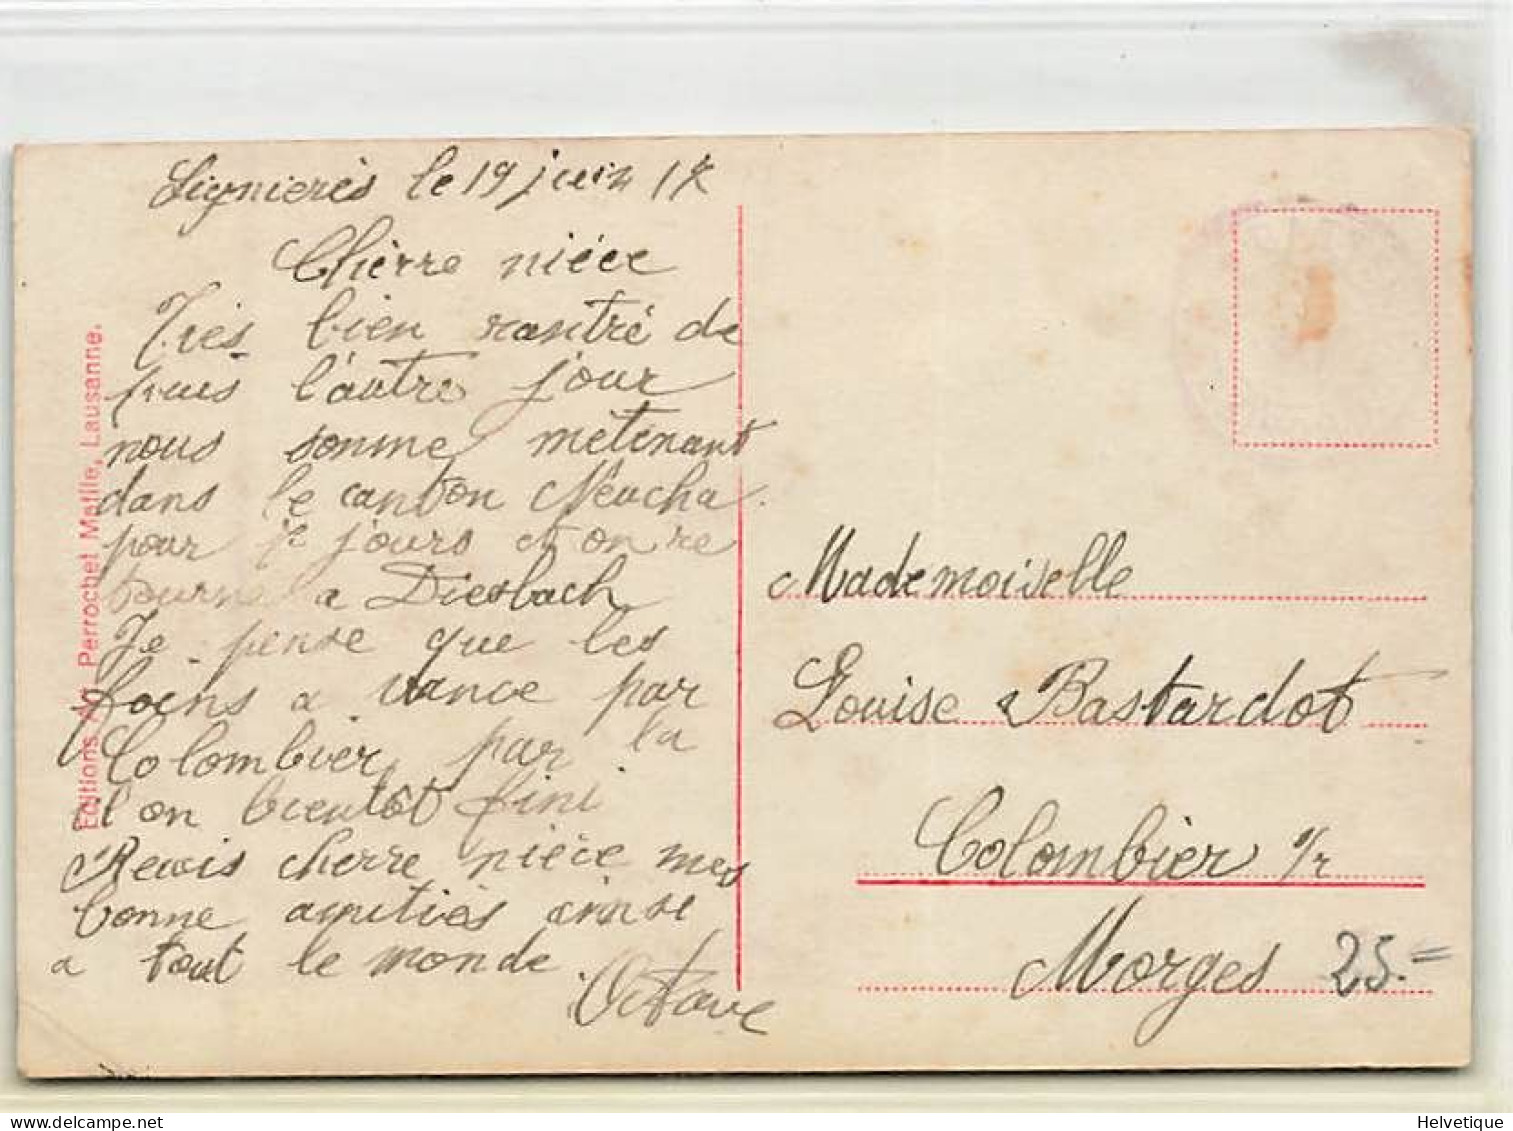 Lignierès le 19 juin 17
Chèrre nièce
Très bien rantré de
puis l'autre jour
nous somme metenant
dans le canton Neucha
pour jours et on re
tourne a Diesbach
Je pense que les
foins a vance par
Colombier, par la
il on bientôt fini
Rewis cherre nièce mes
bonne amitiés ainse
a tout le monde.
Octave
Editions Art. Perrochet Matile, Lausanne.
Mademoiselle
Louise Bastardot
Colombier s/r
Morges 25.-
Helvetique